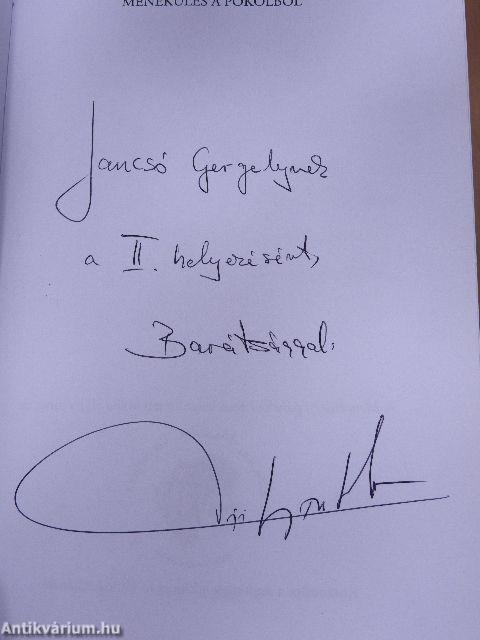 MENEKÜLÉS A POKOLBÓL
Jancsó Gergelynek
a II. helyezésént,
Barátsággal.
Antikvárium.hu